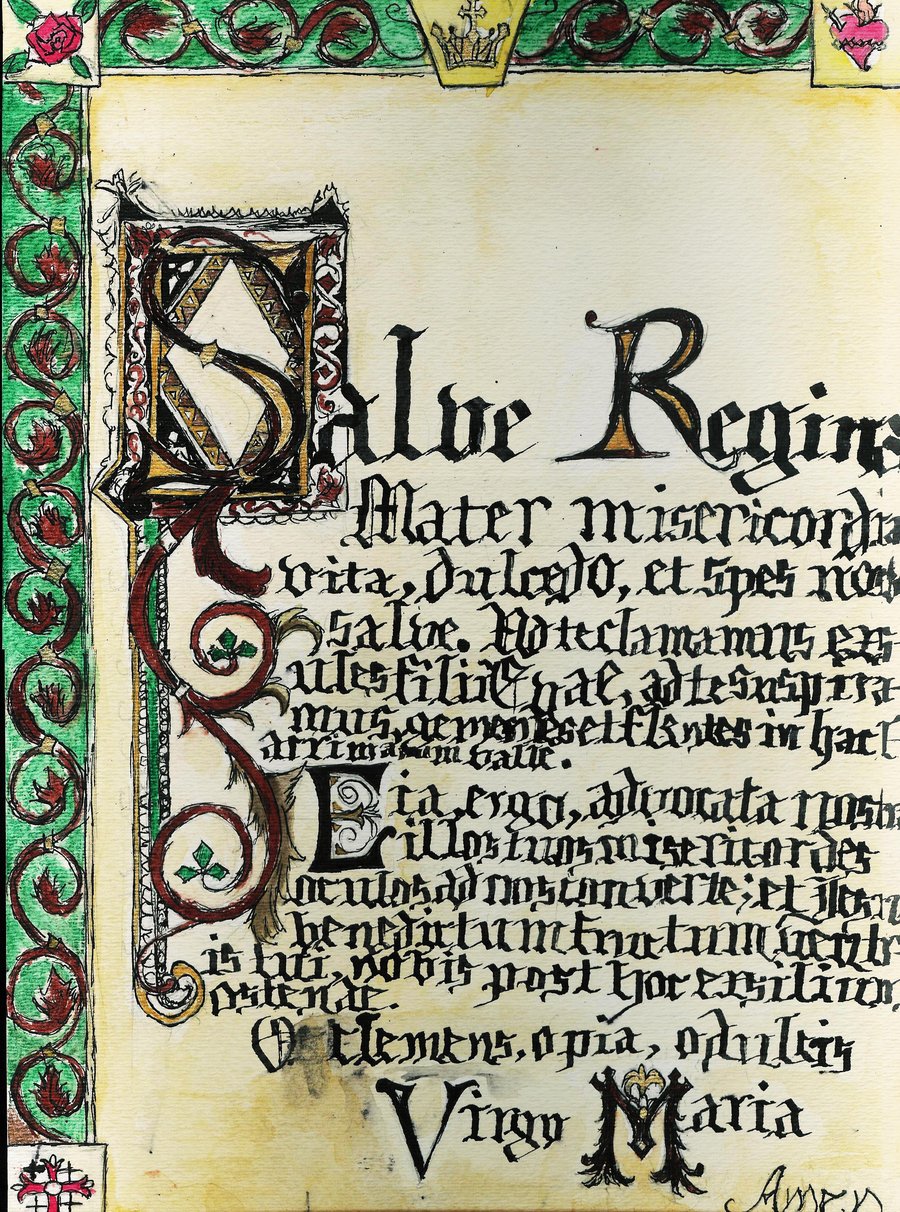 Salve Regina
Mater misericordia
vita, dulcedo, et spes nost
salve. Ad te clamamus exs
ules filii Evae, ad te suspira
mus, gementes et flentes in hac l
acrimarum valle.
Eia, ergo, advocata nostr
illos tuos misericordes
oculos ad nos converte; et Jesu
benedictum fructum ventr
is tui, nobis post hoc exsilium,
ostende.
O clemens, o pia, o dulcis
Virgo Maria
Amen